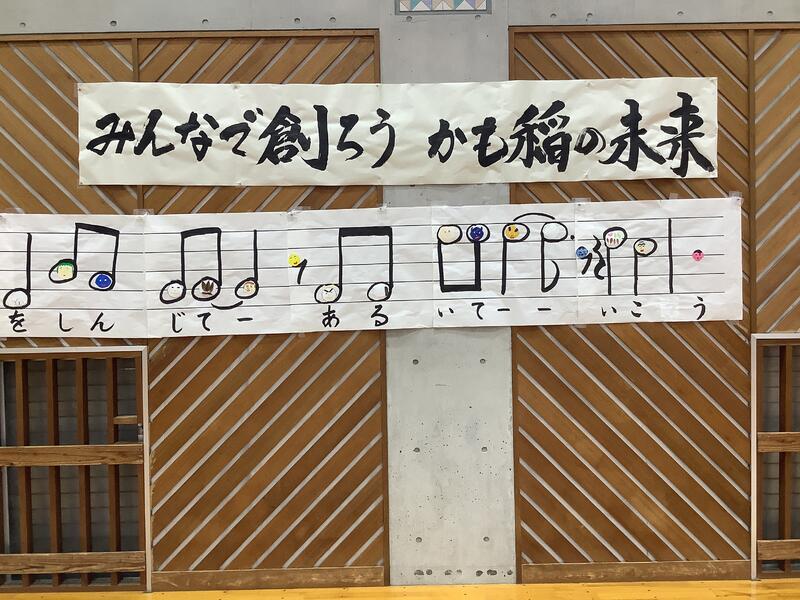 みんなで創ろう かも稲の未来
をしん じてー ある いてーー いこう